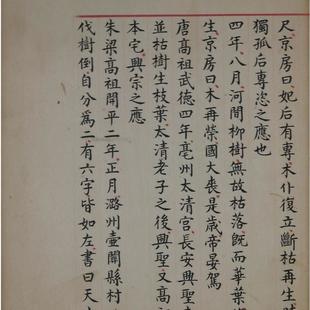 尺京房曰妃后有專木仆復立斷枯再生
獨孤后專恣之應也
四年八月河間柳樹無故枯落旣而華葉
生京房曰木再榮國大喪是歲帝晏駕
唐高祖武德四年亳州太清宮長安興聖
並枯樹生枝葉太清老子之後興聖又高
本宅興宗之應
朱梁高祖開平二年正月潞州壺關縣村
伐樹倒自分爲二有六字皆如左書曰天